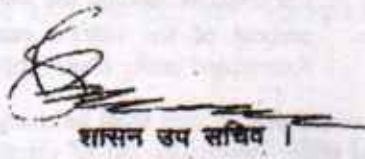 शासन उप सचिव ।